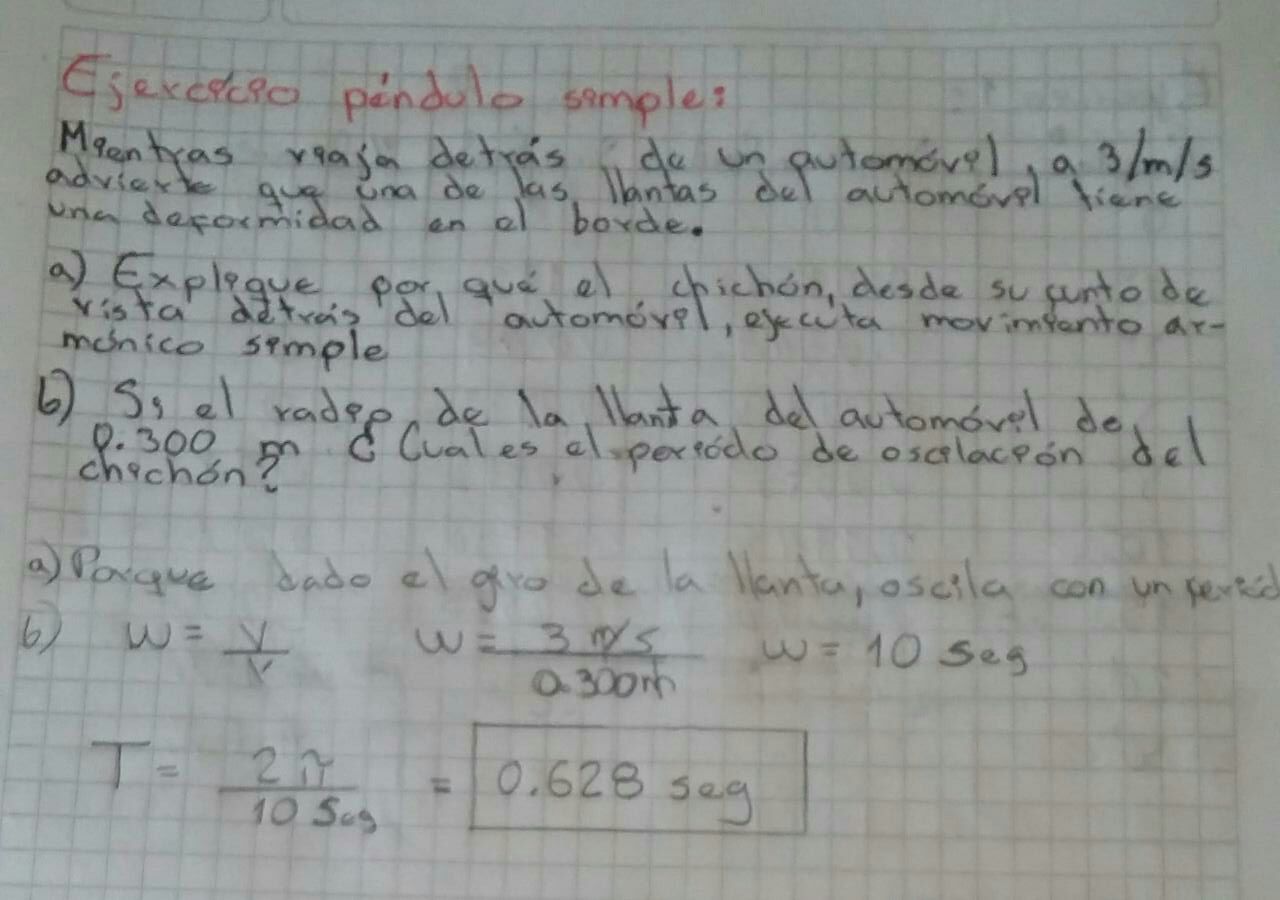 Ejercicio péndulo simple:
Mientras viaja detrás de un automóvil, a 3/m/s
advierte que una de las llantas del automóvil tiene
una deformidad en el borde.
a) Explique por qué el chichón, desde su punto de
vista detrás del automóvil, ejecuta movimiento ar-
mónico simple
b) Si el radio de la llanta del automóvil de
0.300 m ¿Cual es el período de oscilación del
chichón?
a) Porque dado el giro de la llanta, oscila con un
b) w = v/r w = 3 m/s / 0.300m w = 10 seg
T = 2π / 10 Seg = 0.628 seg